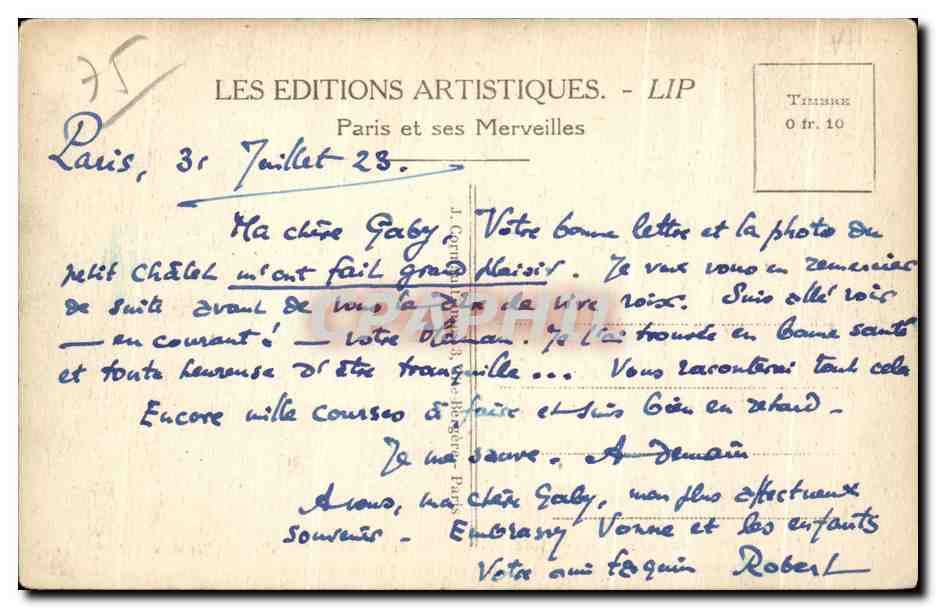 75
LES EDITIONS ARTISTIQUES. - LIP
Paris et ses Merveilles
TIMBRE
0 fr. 10
Paris, 31 Juillet 23.
Ma chère Gaby, Votre bonne lettre et la photo du
petit Châlet m'ont fait grand plaisir. Je veux vous en remercier
de suite avant de vous le dire de vive voix. Suis allé voir
— en courant ! — votre Maman. Je l'ai trouvée en bonne santé
et toute heureuse d'être tranquille... Vous raconterai tout cela
Encore mille courses à faire et suis bien en retard -
Je me sauve. A demain
A vous, ma chère Gaby, mon plus affectueux
souvenir - Embrassez Vonne et les enfants
Votre ami Robert
Rue Bergère - Paris
CPAPHIL